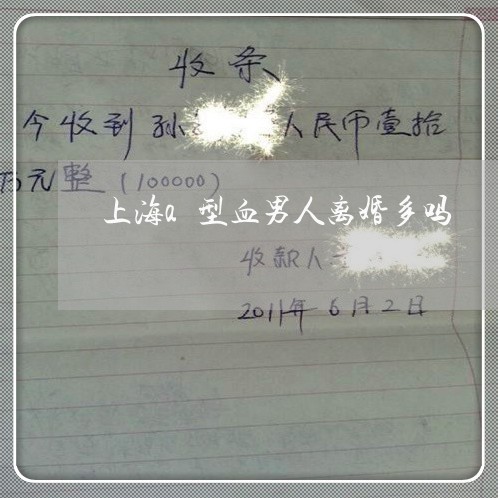 收条
今收到孙人民币壹拾
万元整（100000）
上海a 型血男人离婚多吗
收款人
2011年6月2日